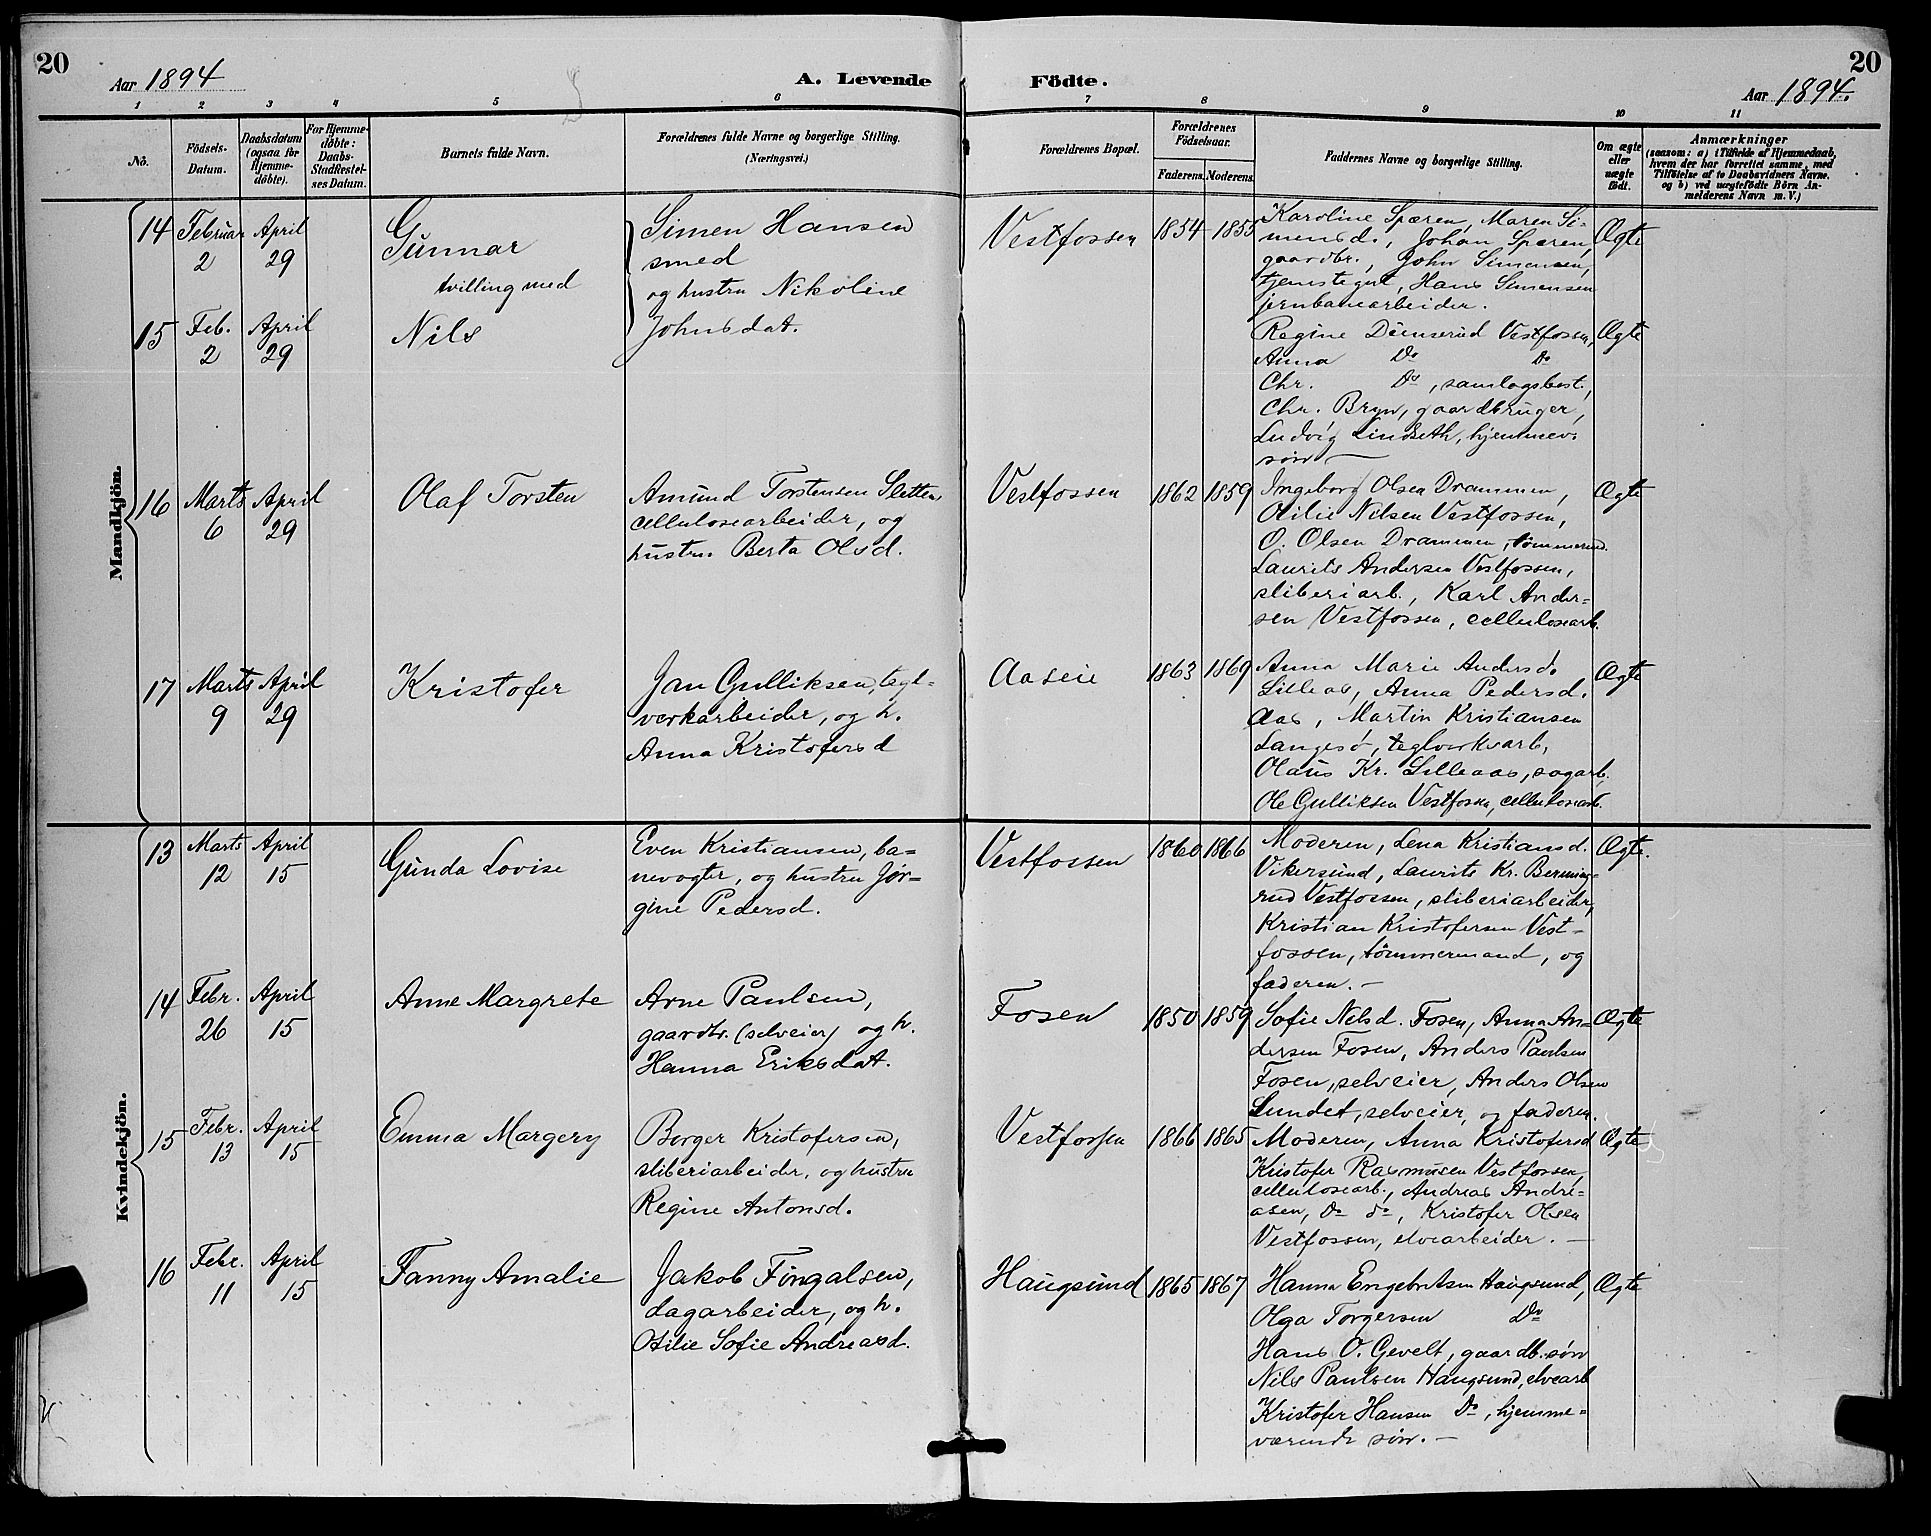 20
Aar 1894
A. Levende Födte.
Aar 1894.
20
1 2 3 4 5 6 7 8 9 10 11
No.
Födsels-Datum.
Daabsdatum (ogsaa for Hjemme-døbte).
For Hjemme-døbte: Daabs-Stadfæstel-ses Datum.
Barnets fulde Navn.
Forældrenes fulde Navne og borgerlige Stilling. (Næringsvei.)
Forældrenes Bopæl.
Forældrenes Födselsaar.
Faderens. Moderens.
Faddernes Navne og borgerlige Stilling.
Om ægte eller uægte født.
Anmærkninger
(saasom: a) i Tilfælde af Hjemmedaab, hvem der har forrettet samme, med Tilføielse af to Daabsvidners Navne, og b) ved uægtefødte Börn Anmelderens Navn m. V.)
Mandkjön.
14 Februar 2 April 29
Gunnar
tvilling med
Simen Hansen
smed
og hustru Nikoline
Johnsdat.
Vestfossen 1854 1855
Karoline Spæren, Maren Si-
mensd., Johan Spæren,
gaardbr., John Simensen,
tjenestegut, Hans Simensen
jernbanearbeider.
Ægte
15 Feb. 2 April 29
Nils
Regine Vestfossen,
Anna Do Do
Chr. Do, samlagsbest.,
Chr. Bryn, gaardbruger,
Ludvig Lindseth, hjemmev.
søn —
Ægte
16 Marts 6 April 29
Olaf Torsten
Amund Torstensen Sletten
cellulosearbeider, og
hustru Berta Olsd.
Vestfossen 1862 1859
Ingeborg Olsen Drammen,
Otilie Nilsen Vestfossen,
O. Olsen Drammen, tömmermd.
Laurits Andersen Vestfossen,
sliberiarb., Karl Ander=
sen Vestfossen, cellulosearb.
Ægte
17 Marts 9 April 29
Kristofer
Jan Gulliksen, tegl=
verkarbeider, og h.
Anna Kristofersd
Aaseie 1863 1869
Anna Marie Andersd.
Lilleaas, Anna Pedersd.
Aas, Martin Kristiansen
Langesö, teglverksarb,
Olaus Kr. Lilleaas, sagarb.
Ole Gulliksen Vestfossen, cellulosearb.
Ægte
Kvindekjön.
13 Marts 12 April 15
Gunda Lovise
Even Kristiansen, ba=
nevogter, og hustru Jør-
gine Pedersd.
Vestfossen 1860 1866
Moderen, Lena Kristiansd.
Vikersund, Laurits Kr.
rud Vestfossen, sliberiarbeider,
Kristian Kristofersen Vest-
fossen, tömmermand, og
faderen. —
Ægte.
14 Febr. 26 April 15
Anne Margrete
Arne Paulsen,
gaardbr. (selveier) og h.
Hanna Eriksdat.
Fosen 1850 1859
Sofie Nelsd. Fosen, Anna An=
dersen Fosen, Anders Paulsen
Fosen, selveier, Anders Olsen
Lundet, selveier, og faderen.
Ægte
15 Febr. 13 April 15
Emma Margery
Borger Kristofersen,
sliberiarbeider, og hustru
Regine Antonsd.
Vestfossen 1866 1865
Moderen, Anna Kristofersd
Kristofer Rasmusen Vestfossen,
cellulosearb., Andreas Andre=
asen, do do, Kristofer Olsen
Vestfossen, elvearbeider. —
Ægte
16 Febr. 11 April 15
Fanny Amalie
Jakob Fingalsen,
dagarbeider, og h.
Otilie Sofie Andreasd.
Haugsund 1865 1867
Hanna Engebretsen Haugsund,
Olga Torgersen Do
Hans O. Gevelt, gaardb. søn
Nils Paulsen Haugsund, elvearb
Kristofer Hansen Do, hjemme=
værende søn. —
Ægte